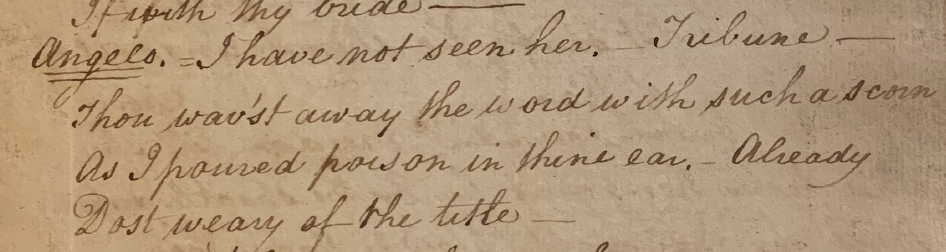 If with thy bride —
Angelo. = I have not seen her. — Tribune —
Thou wav'st away the word with such a scorn
As I poured poison in thine ear. – Already
Dost weary of the title —